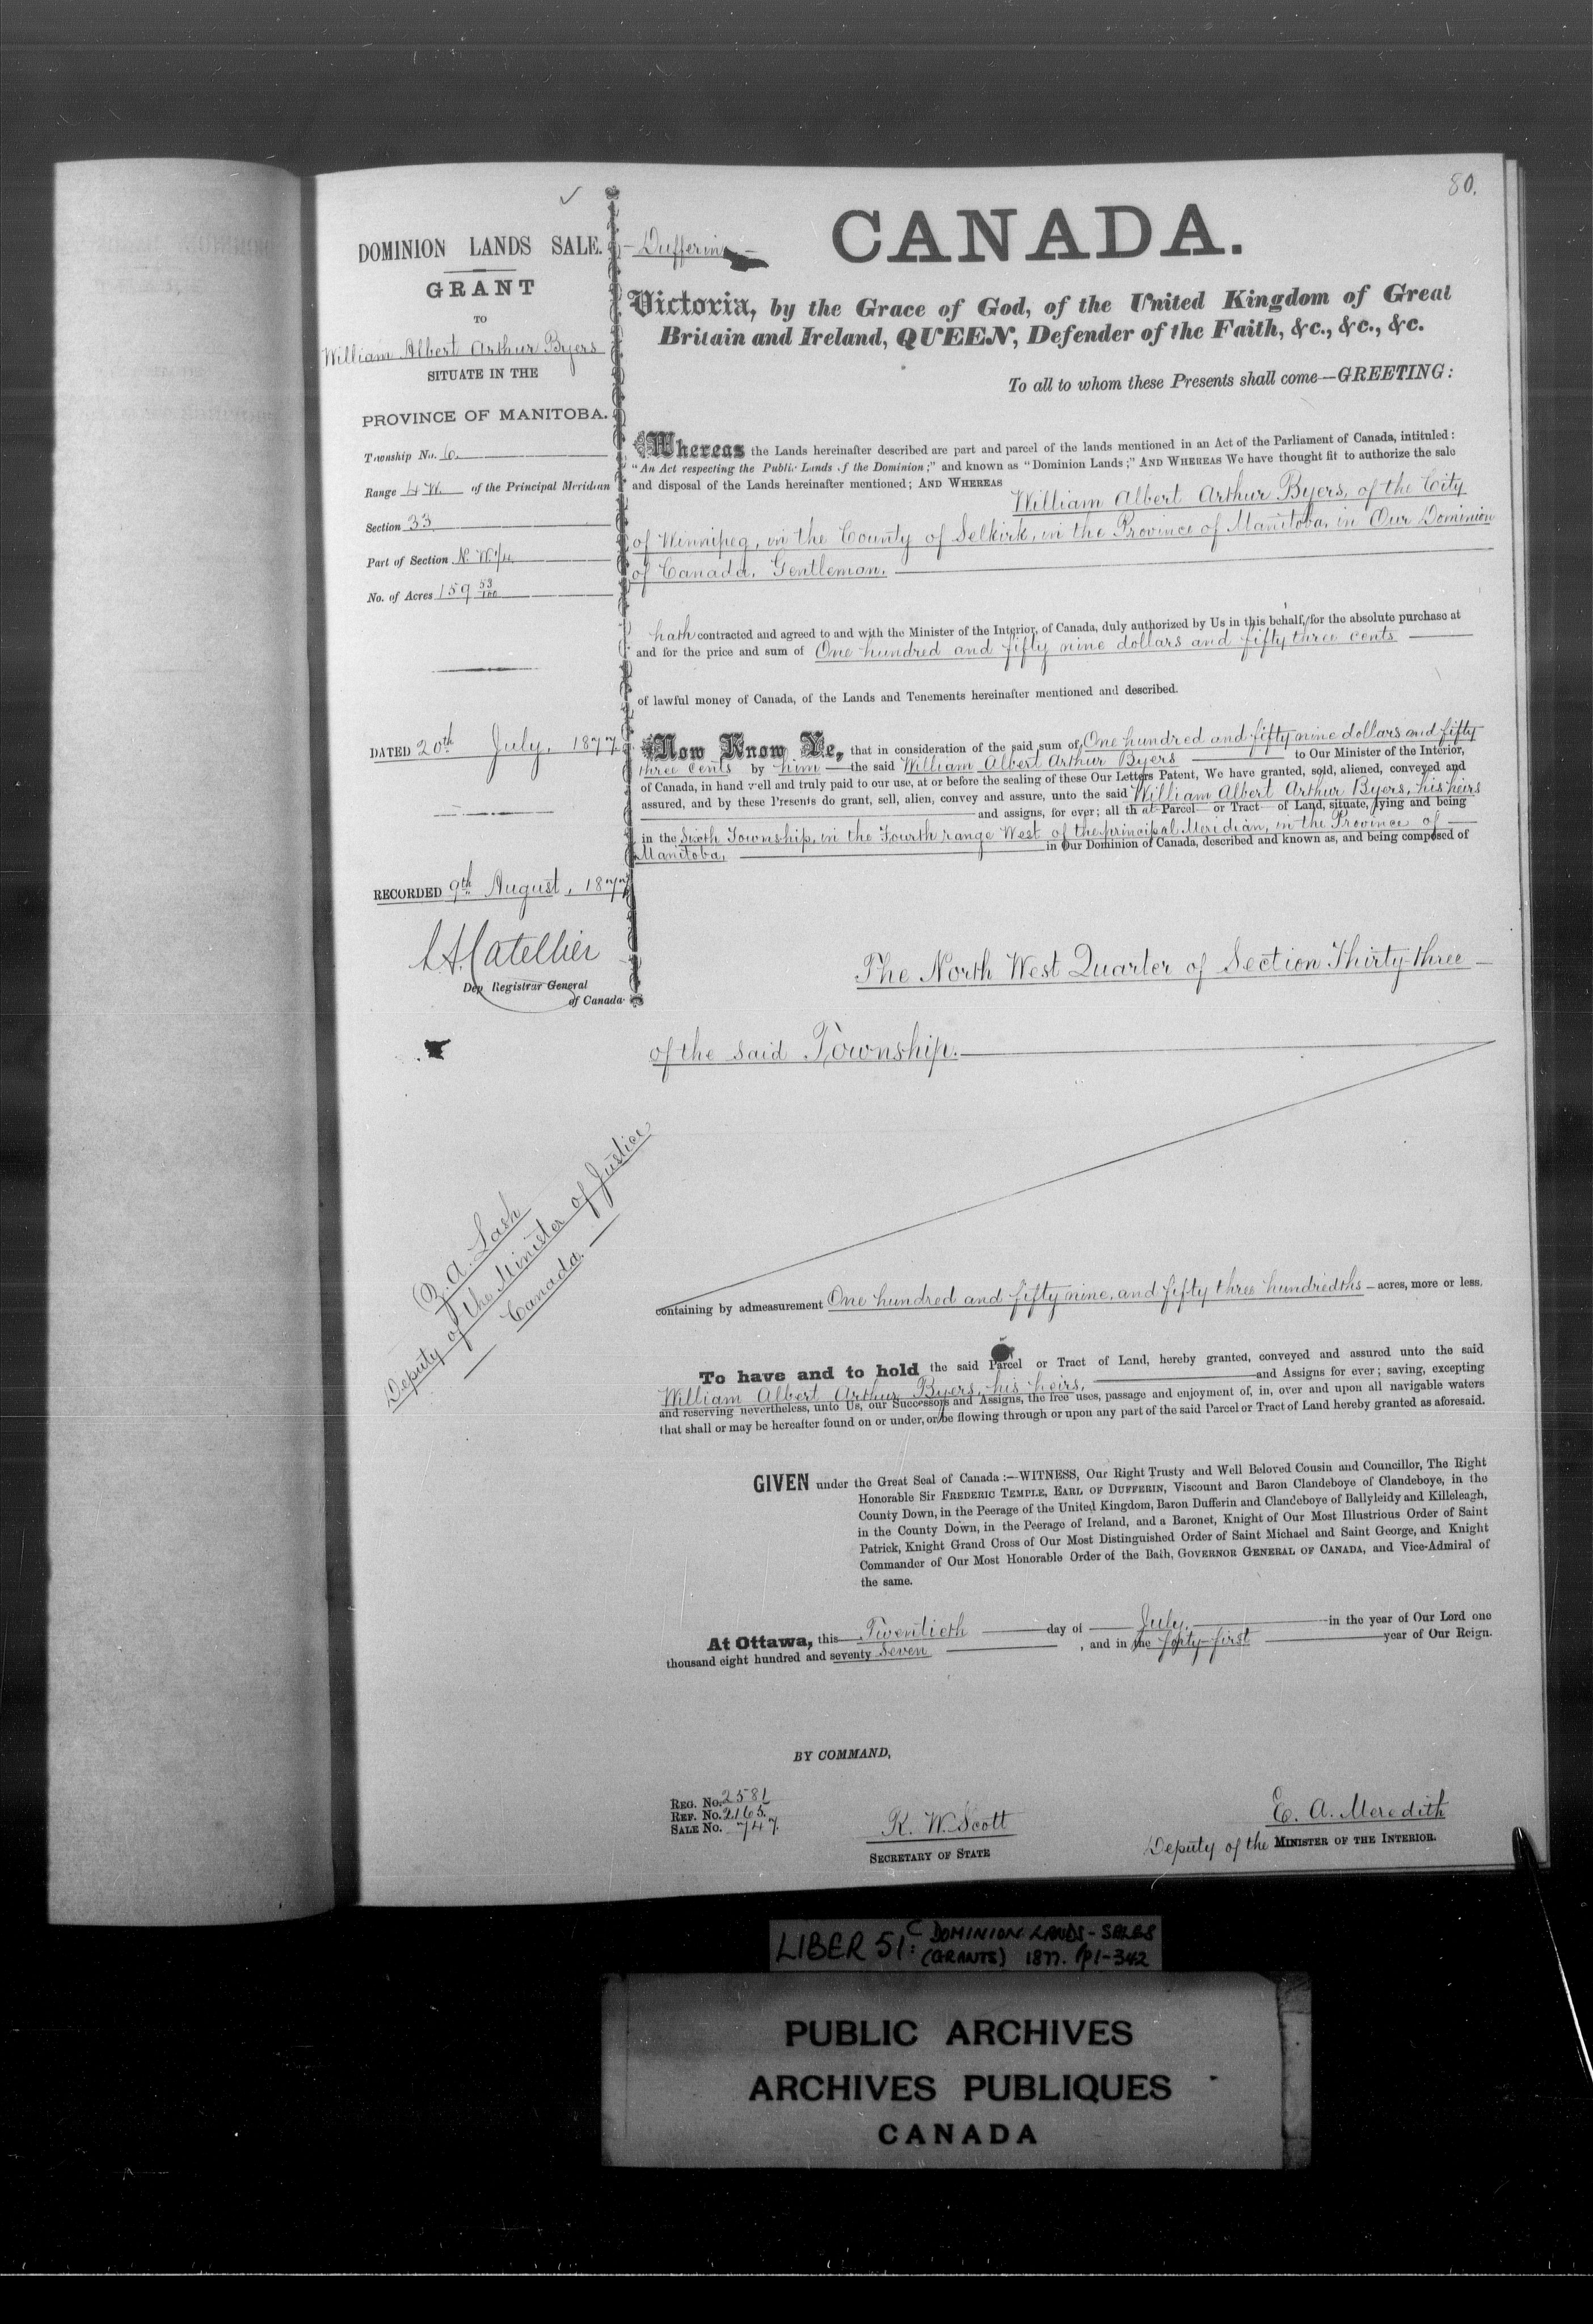 80.
DOMINION LANDS SALE.
GRANT
TO
William Albert Arthur Byers
SITUATE IN THE
PROVINCE OF MANITOBA.
Township No. 6.
Range 4 W. of the Principal Meridian
Section 33
Part of Section N. W 1/4.
No. of Acres 159 53/100
DATED 20th July, 1877
RECORDED 9th August, 1877
L. A. Catellier
Dep Registrar General
of Canada
Z. A. Lash
Deputy of the Minister of Justice
Canada.
Dufferin
CANADA.
Victoria, by the Grace of God, of the United Kingdom of Great
Britain and Ireland, QUEEN, Defender of the Faith, &c., &c., &c.
To all to whom these Presents shall come—GREETING:
Whereas the Lands hereinafter described are part and parcel of the lands mentioned in an Act of the Parliament of Canada, intituled:
"An Act respecting the Public Lands of the Dominion;" and known as "Dominion Lands;" AND WHEREAS We have thought fit to authorize the sale
and disposal of the Lands hereinafter mentioned; AND WHEREAS
William Albert Arthur Byers, of the City
of Winnipeg, in the County of Selkirk, in the Province of Manitoba, in Our Dominion
of Canada, Gentleman.
hath contracted and agreed to and with the Minister of the Interior, of Canada, duly authorized by Us in this behalf, for the absolute purchase at
and for the price and sum of One hundred and fifty nine dollars and fifty three cents
of lawful money of Canada, of the Lands and Tenements hereinafter mentioned and described.
Now Know Ye, that in consideration of the said sum of One hundred and fifty nine dollars and fifty
three cents by him the said William Albert Arthur Byers to Our Minister of the Interior,
of Canada, in hand well and truly paid to our use, at or before the sealing of these Our Letters Patent, We have granted, sold, aliened, conveyed and
assured, and by these Presents do grant, sell, alien, convey and assure, unto the said William Albert Arthur Byers, his heirs
and assigns, for ever; all that Parcel or Tract of Land, situate, lying and being
in the Sixth Township, in the Fourth range West of the principal Meridian, in the Province of
Manitoba, in Our Dominion of Canada, described and known as, and being composed of
The North West Quarter of Section Thirty-three
of the said Township.
containing by admeasurement One hundred and fifty nine, and fifty three hundredths acres, more or less.
To have and to hold the said Parcel or Tract of Land, hereby granted, conveyed and assured unto the said
William Albert Arthur Byers, his heirs, and Assigns for ever; saving, excepting
and reserving nevertheless, unto Us, our Successors and Assigns, the free uses, passage and enjoyment of, in, over and upon all navigable waters
that shall or may be hereafter found on or under, or be flowing through or upon any part of the said Parcel or Tract of Land hereby granted as aforesaid.
GIVEN under the Great Seal of Canada:—WITNESS, Our Right Trusty and Well Beloved Cousin and Councillor, The Right
Honorable Sir FREDERIC TEMPLE, EARL OF DUFFERIN, Viscount and Baron Clandeboye of Clandeboye, in the
County Down, in the Peerage of the United Kingdom, Baron Dufferin and Clandeboye of Ballyleidy and Killeleagh,
in the County Down, in the Peerage of Ireland, and a Baronet, Knight of Our Most Illustrious Order of Saint
Patrick, Knight Grand Cross of Our Most Distinguished Order of Saint Michael and Saint George, and Knight
Commander of Our Most Honorable Order of the Bath, GOVERNOR GENERAL OF CANADA, and Vice-Admiral of
the same.
At Ottawa, this Twentieth day of July, in the year of Our Lord one
thousand eight hundred and seventy seven, and in the forty-first year of Our Reign.
BY COMMAND,
REG. No. 2581
REF. No. 2165.
SALE No. 747.
R. W. Scott
SECRETARY OF STATE
E. A. Meredith
Deputy of the MINISTER OF THE INTERIOR.
LIBER 51C: DOMINION LANDS - SALES
(GRANTS) 1877. pp1-342
PUBLIC ARCHIVES
ARCHIVES PUBLIQUES
CANADA